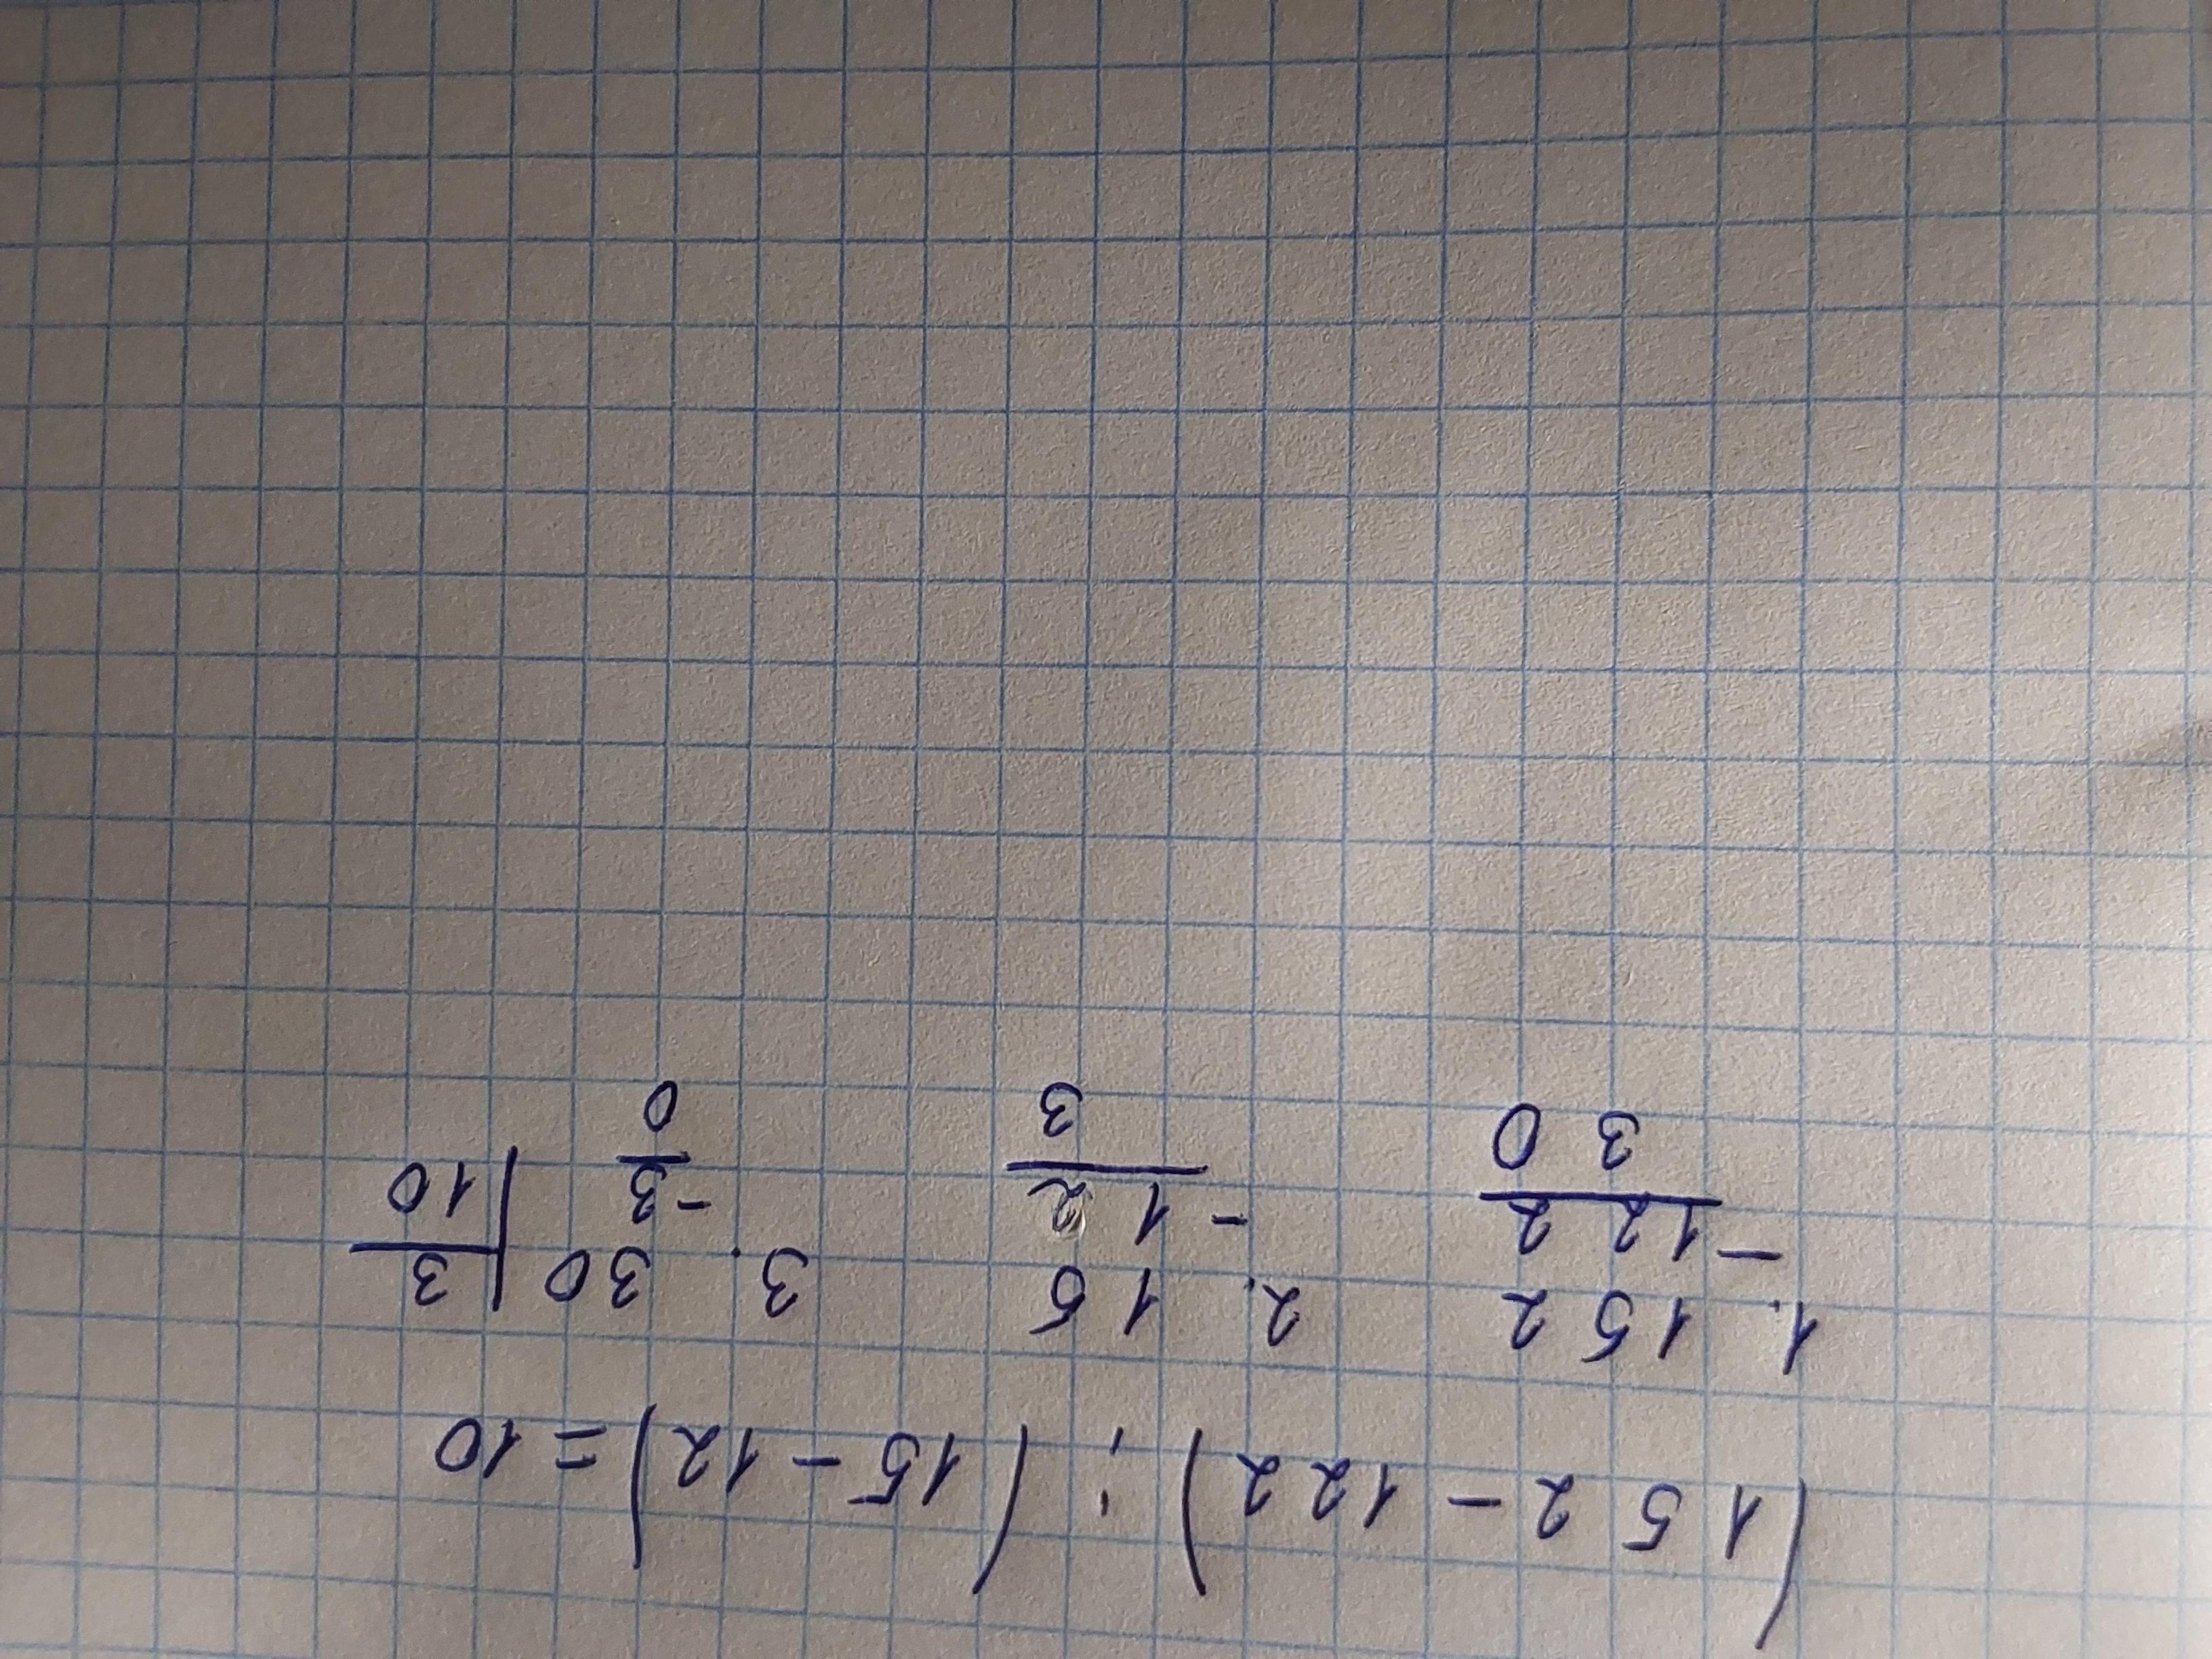 (152-122):(15-12)=10
1. 152 2. 15 3. 30 3
-122 -12 -3 10
30 3 0